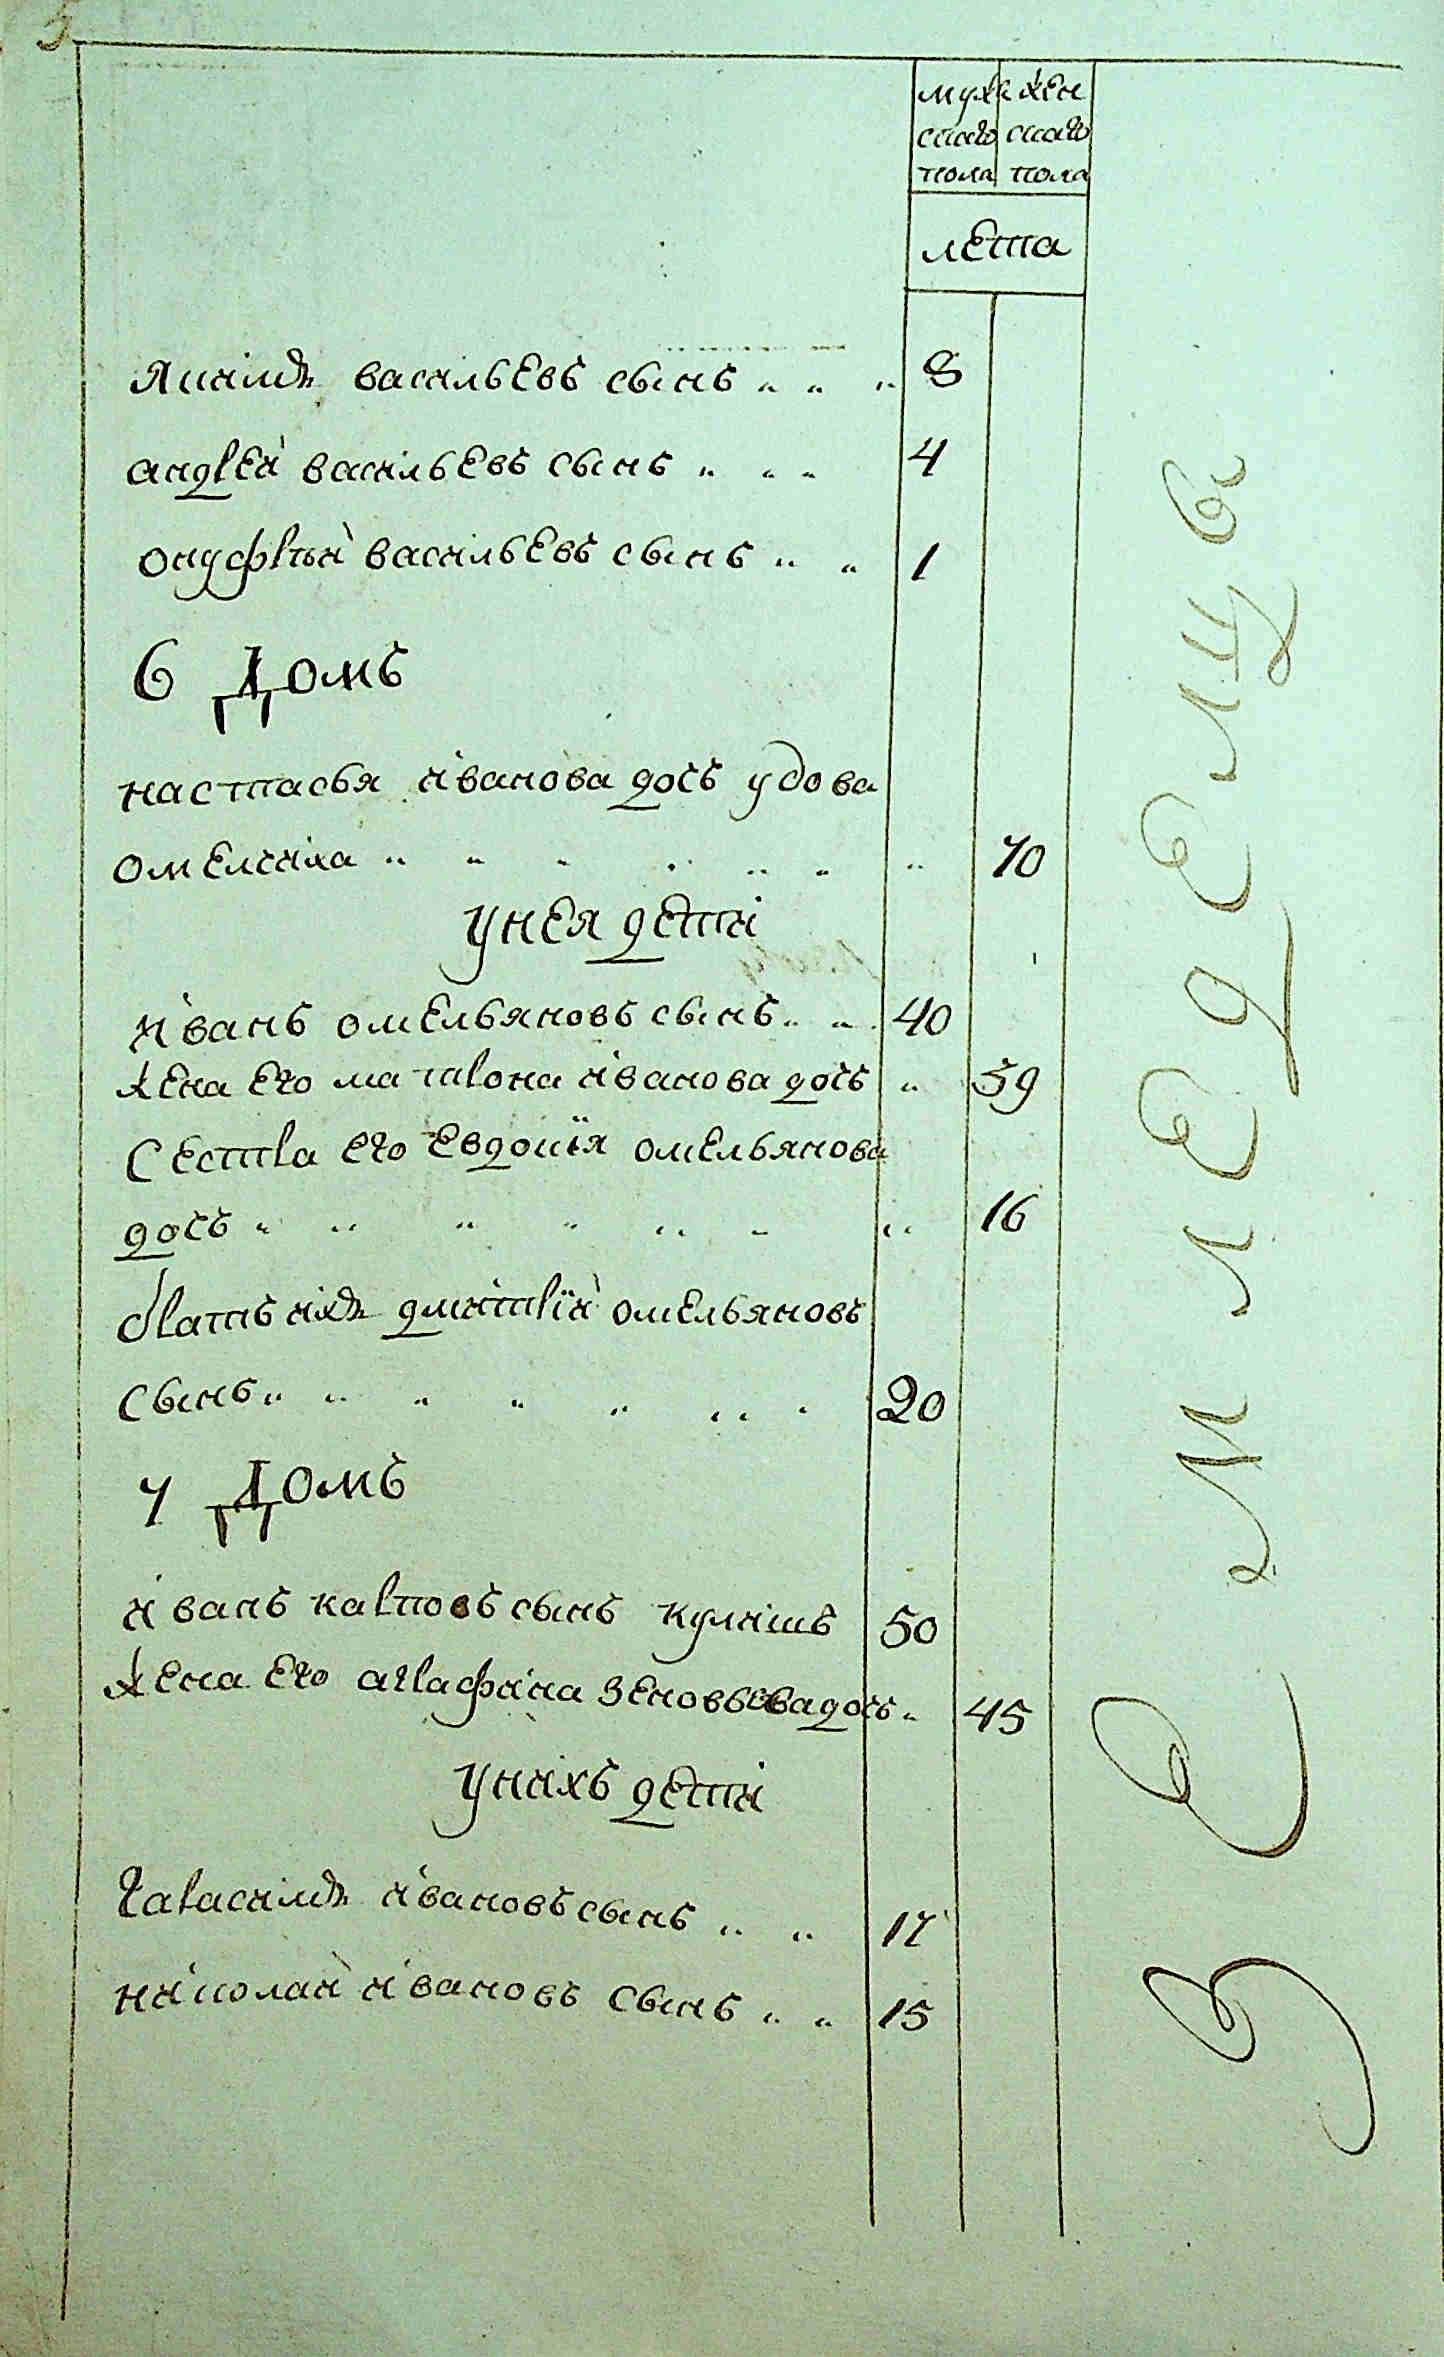 мужескаго пола женскаго пола
лета
якимъ васильевъ сынъ 8
андрей васильевъ сынъ 4
онуфрий васильевъ сынъ 1
6 Домъ
настасья иванова дочь удова
омелчиха 70
унея дети
иванъ омельяновъ сынъ 40
жена его матрона иванова дочь 39
Сестра его евдокїя омельянова
дочь 16
братъ ихъ дмитрїй омельяновъ
сынъ 20
7 Домъ
иванъ карповъ сынъ кулишъ 50
жена его аграфина зеновьева дочь 45
унихъ дети
герасимъ ивановъ сынъ 17
николай ивановъ сынъ 15
Земледелцы